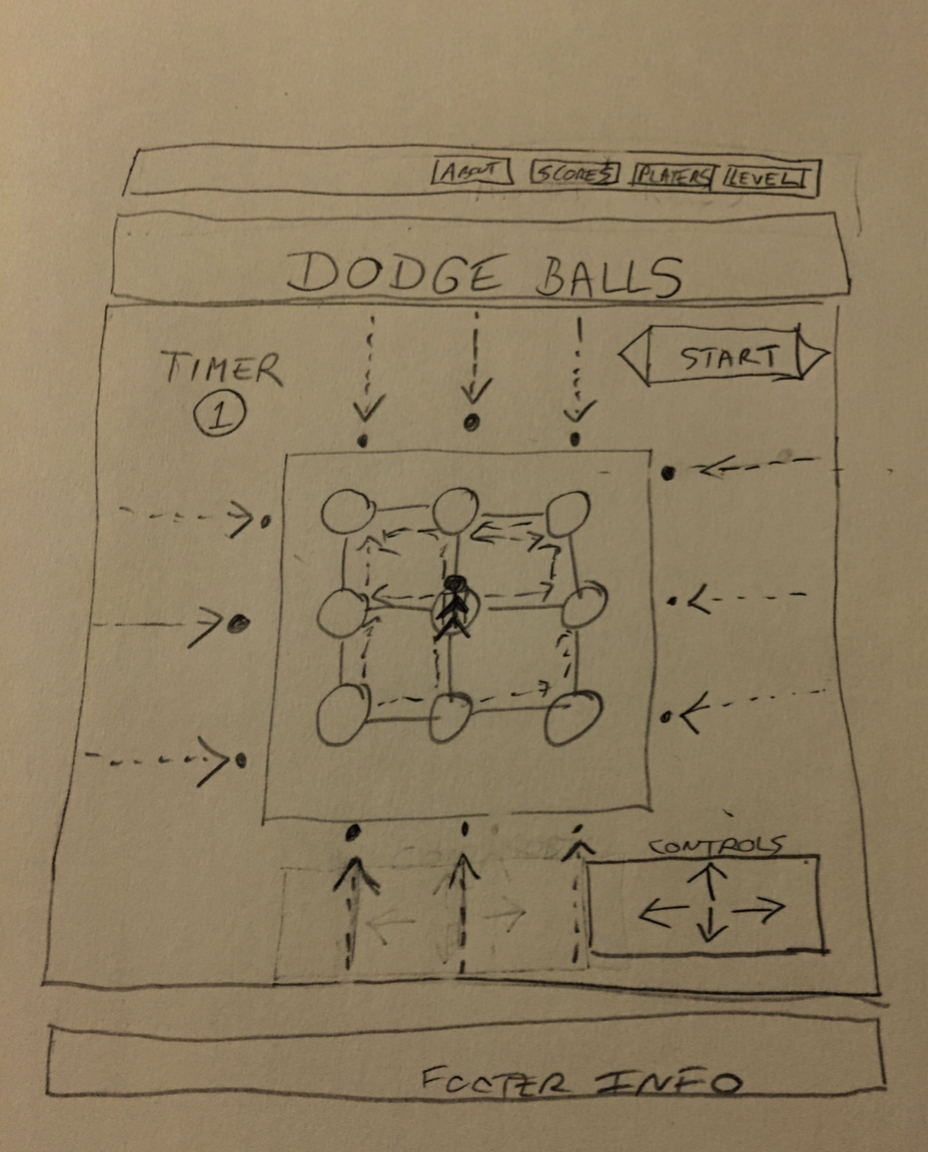 ABOUT SCORES PLAYERS LEVEL
DODGE BALLS
TIMER
1
START
CONTROLS
FOOTER INFO